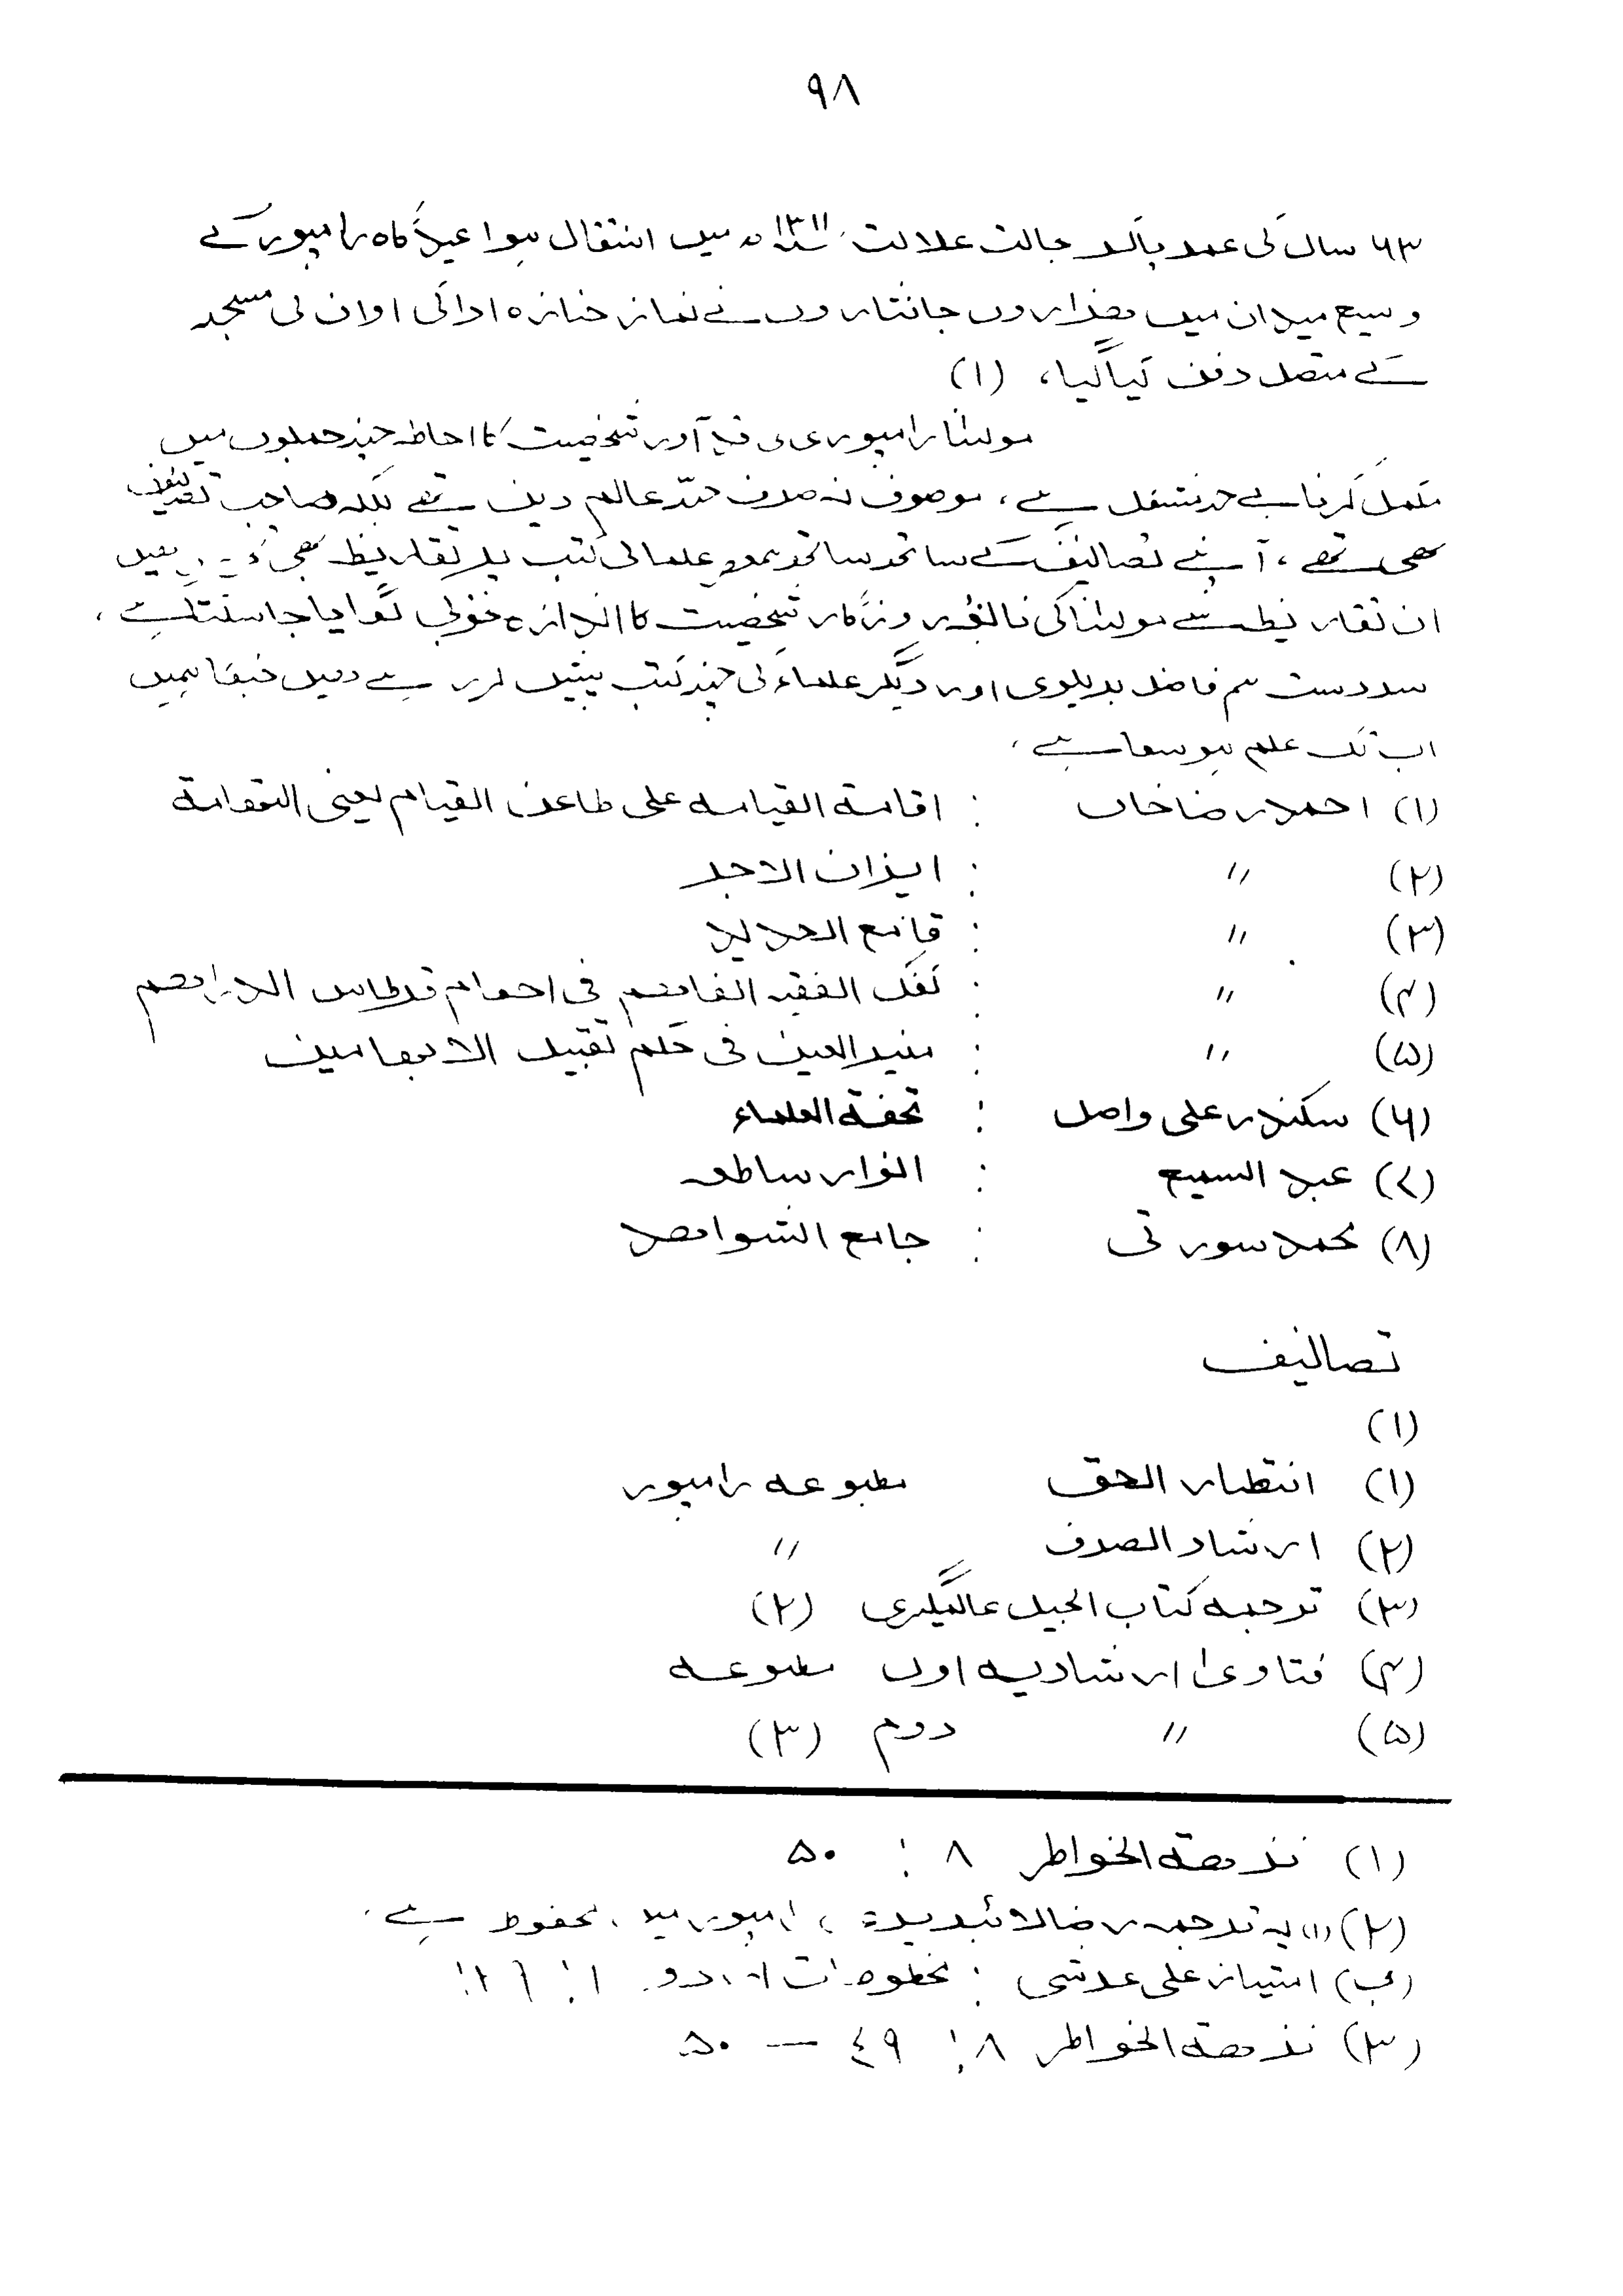 ۹۸
۶۳ سال کی عمر پاکر بحالت علالت ۱۳۱۱ھ میں انتقال ہوا عیدگاہ رامپور کے
وسیع میدان میں ہزاروں جانثاروں نے نماز جنازہ ادا کی اوران کی مسجد
کے متصل دفن کیا گیا، (۱)
مولانا رامپوری کی قد آور شخصیت کا احاطہ چند جملوں میں
مکمل کرنا بے حد مشکل ہے، موصوف نہ صرف جید عالم دین تھے بلکہ صاحب تصانیف
بھی تھے، آپنے تصانیف کے ساتھ ساتھ علما کی کتب پر تقاریظ بھی
ان تقاریظ سے مولانا کی نابغہ روزگار شخصیت کا اندازہ بخوبی لگوایا جاسکتا ہے،
سردست ہم فاضل بریلوی اور دیگر علماء کی چند کتب پیش کررہے ہیں جنکا ہمیں
اب تک علم ہوسکا ہے،
(۱) احمد رضا خاں : اقامة القیامہ علی طاعن القیام لعنی التھامة
(۲) ״ : ایذان الاجر
(۳) ״ :
(۴) ״ : کفل الفقیہ الفاھم فی احکام قرطاس الدراھم
(۵) ״ : منیر العین فی حکم تقبیل الابھامین
(۶) سکندر علی واصل : تحفۃ العلماء
(۷) عبد السمیع : انوار ساطعہ
(۸) محمد سورتی : جامع الشواھد
تصانیف
(۱)
(۱) انتظار الحق مطبوعہ رامپور
(۲) ارشاد الصرف ״
(۳) ترجمہ کتاب الحیل عالمگیری (۲)
(۴) فتاویٰ ارشادیہ اول مطبوعہ
(۵) ״ دوم (۳)
(۱) نزھة الخواطر ۸ : ۵۰
(۲) (۱) یہ ترجمہ رضا لائبریری رامپور میں محفوظ ہے،
(ب) امتیاز علی عرشی : مخطوطات اردو ۱ :
(۳) نزھة الخواطر ۸ : ۴۹ — ۵۰